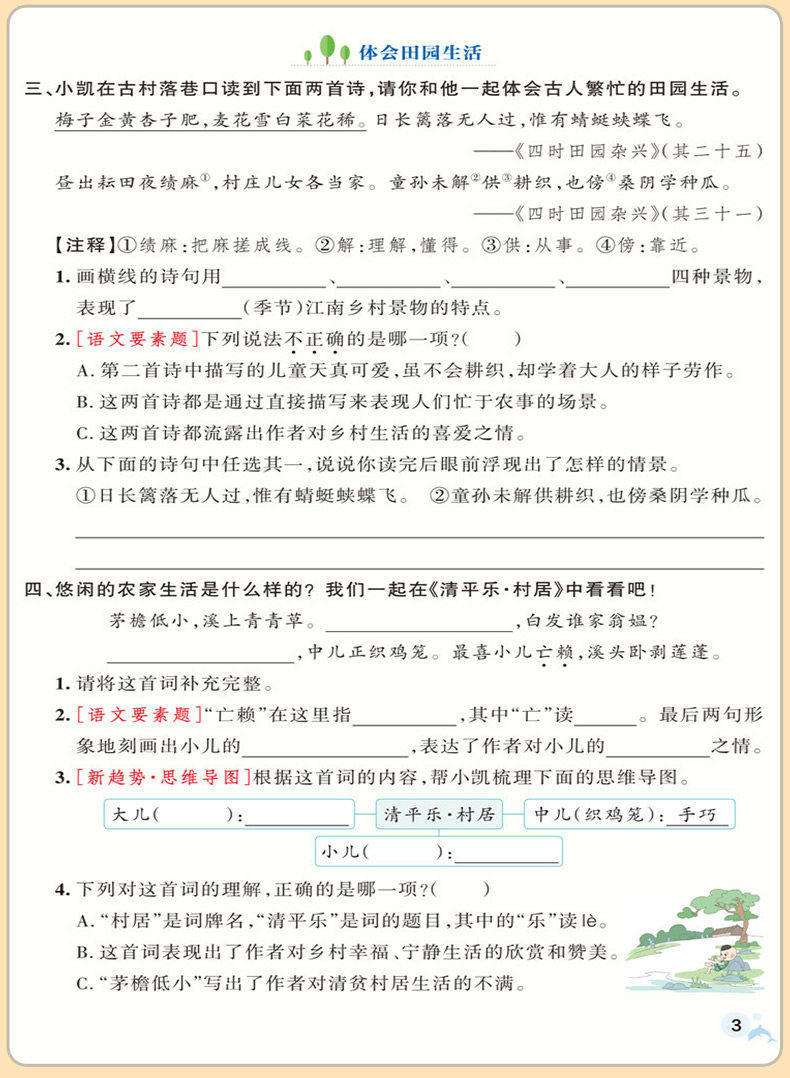 体会田园生活
三、小凯在古村落巷口读到下面两首诗,请你和他一起体会古人繁忙的田园生活。
梅子金黄杏子肥,麦花雪白菜花稀。日长篱落无人过,惟有蜻蜓蛱蝶飞。
——《四时田园杂兴》(其二十五)
昼出耘田夜绩麻①,村庄儿女各当家。童孙未解②供③耕织,也傍④桑阴学种瓜。
——《四时田园杂兴》(其三十一)
【注释】①绩麻:把麻搓成线。②解:理解,懂得。③供:从事。④傍:靠近。
1. 画横线的诗句用__________、__________、__________、__________四种景物,
表现了__________(季节)江南乡村景物的特点。
2. [语文要素题]下列说法不正确的是哪一项?(  )
A. 第二首诗中描写的儿童天真可爱,虽不会耕织,却学着大人的样子劳作。
B. 这两首诗都是通过直接描写来表现人们忙于农事的场景。
C. 这两首诗都流露出作者对乡村生活的喜爱之情。
3. 从下面的诗句中任选其一,说说你读完后眼前浮现出了怎样的情景。
①日长篱落无人过,惟有蜻蜓蛱蝶飞。 ②童孙未解供耕织,也傍桑阴学种瓜。
四、悠闲的农家生活是什么样的? 我们一起在《清平乐·村居》中看看吧!
茅檐低小,溪上青青草。__________________,白发谁家翁媪?
__________________,中儿正织鸡笼。最喜小儿亡赖,溪头卧剥莲蓬。
1. 请将这首词补充完整。
2. [语文要素题]“亡赖”在这里指__________,其中“亡”读______。最后两句形
象地刻画出小儿的________________,表达了作者对小儿的__________之情。
3. [新趋势·思维导图]根据这首词的内容,帮小凯梳理下面的思维导图。
大儿(  ):__________ 清平乐·村居 中儿(织鸡笼):手巧
小儿(  ):__________
4. 下列对这首词的理解,正确的是哪一项?(  )
A. “村居”是词牌名,“清平乐”是词的题目,其中的“乐”读lè。
B. 这首词表现出了作者对乡村幸福、宁静生活的欣赏和赞美。
C. “茅檐低小”写出了作者对清贫村居生活的不满。
3